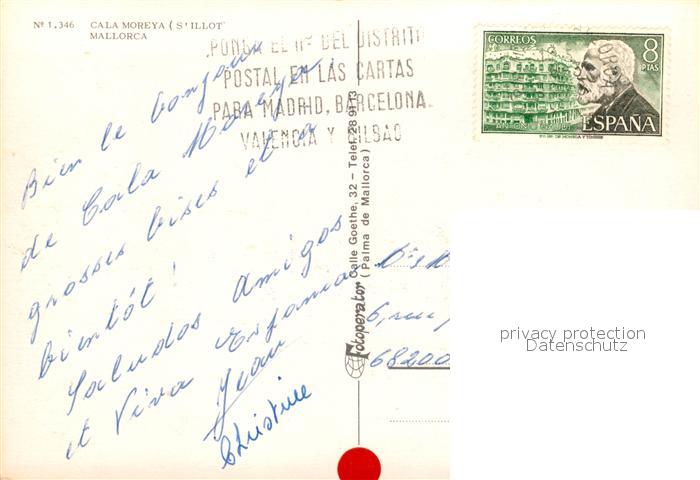 Nº 1.346 CALA MOREYA (S'ILLOT
MALLORCA
PONGA EL Nº DEL DISTRITO
POSTAL EN LAS CARTAS
PARA MADRID, BARCELONA
VALENCIA Y BILBAO
CORREOS
8
PTAS
ANTONIO GAUDI
ESPAÑA
Bien le bonjour
de Cala Moreya,
grosses bises et à
bientôt!
Saludos Amigos
et Viva España
Jean
Christine
Fotoperator Calle Goethe, 32 - Telef. 28 91 13
(Palma de Mallorca)
6, rue
68200
privacy protection
Datenschutz